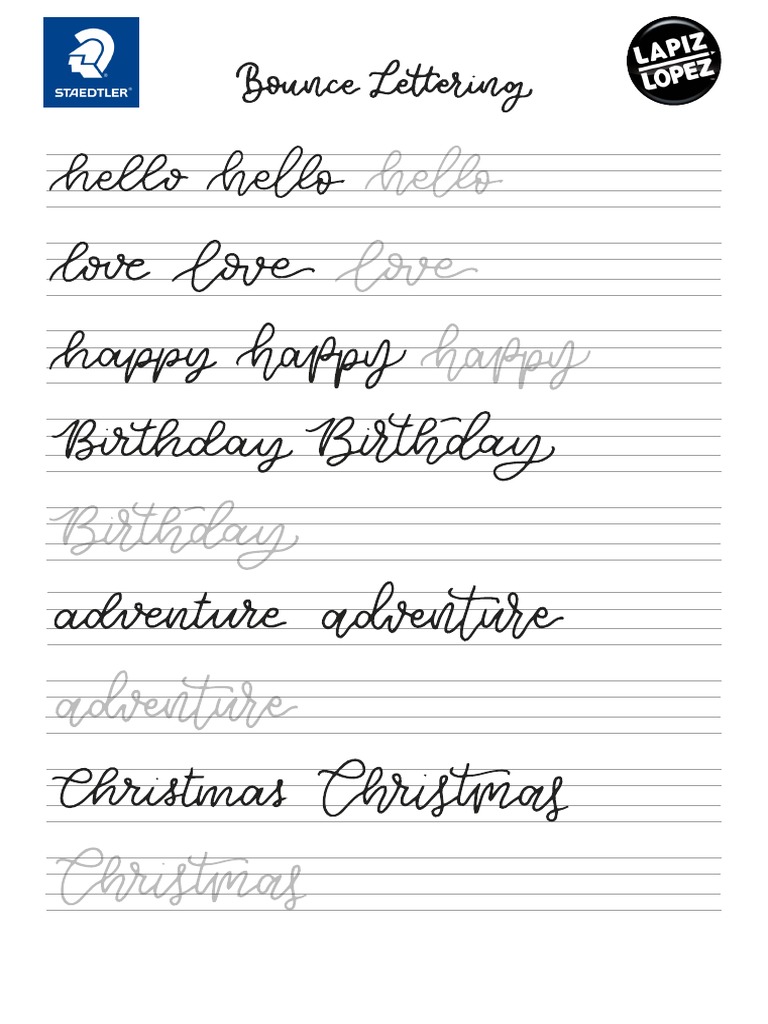 STAEDTLER®
LAPIZ
LOPEZ
Bounce Lettering
hello hello hello
love love love
happy happy happy
Birthday Birthday
Birthday
adventure adventure
adventure
Christmas Christmas
Christmas